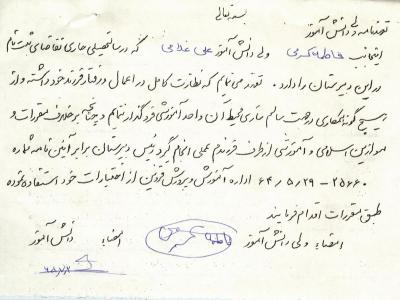 بسمه تعالی
تعهدنامه ولی دانش آموز
اینجانب فاطمه کرمی ولی دانش آموز علی غلامی که در سال تحصیلی جاری تقاضای ثبت نام
در این دبیرستان را دارد. تعهد می نمایم که نظارت کامل در اعمال و رفتار فرزند خود داشته و از
هیچ گونه همکاری در جهت سالم سازی محیط آن واحد آموزشی فروگذار ننمایم و چنانچه بر خلاف مقررات و
موازین اسلامی و آموزشی از طرف فرزندم عملی انجام گیرد رئیس دبیرستان برابر آئین نامه شماره
۲۵۶۶۰ - ۶۴/۵/۲۹ اداره آموزش و پرورش قزوین از اختیارات خود استفاده نموده
طبق مقررات اقدام فرمایند
امضاء ولی دانش آموز امضاء دانش آموز